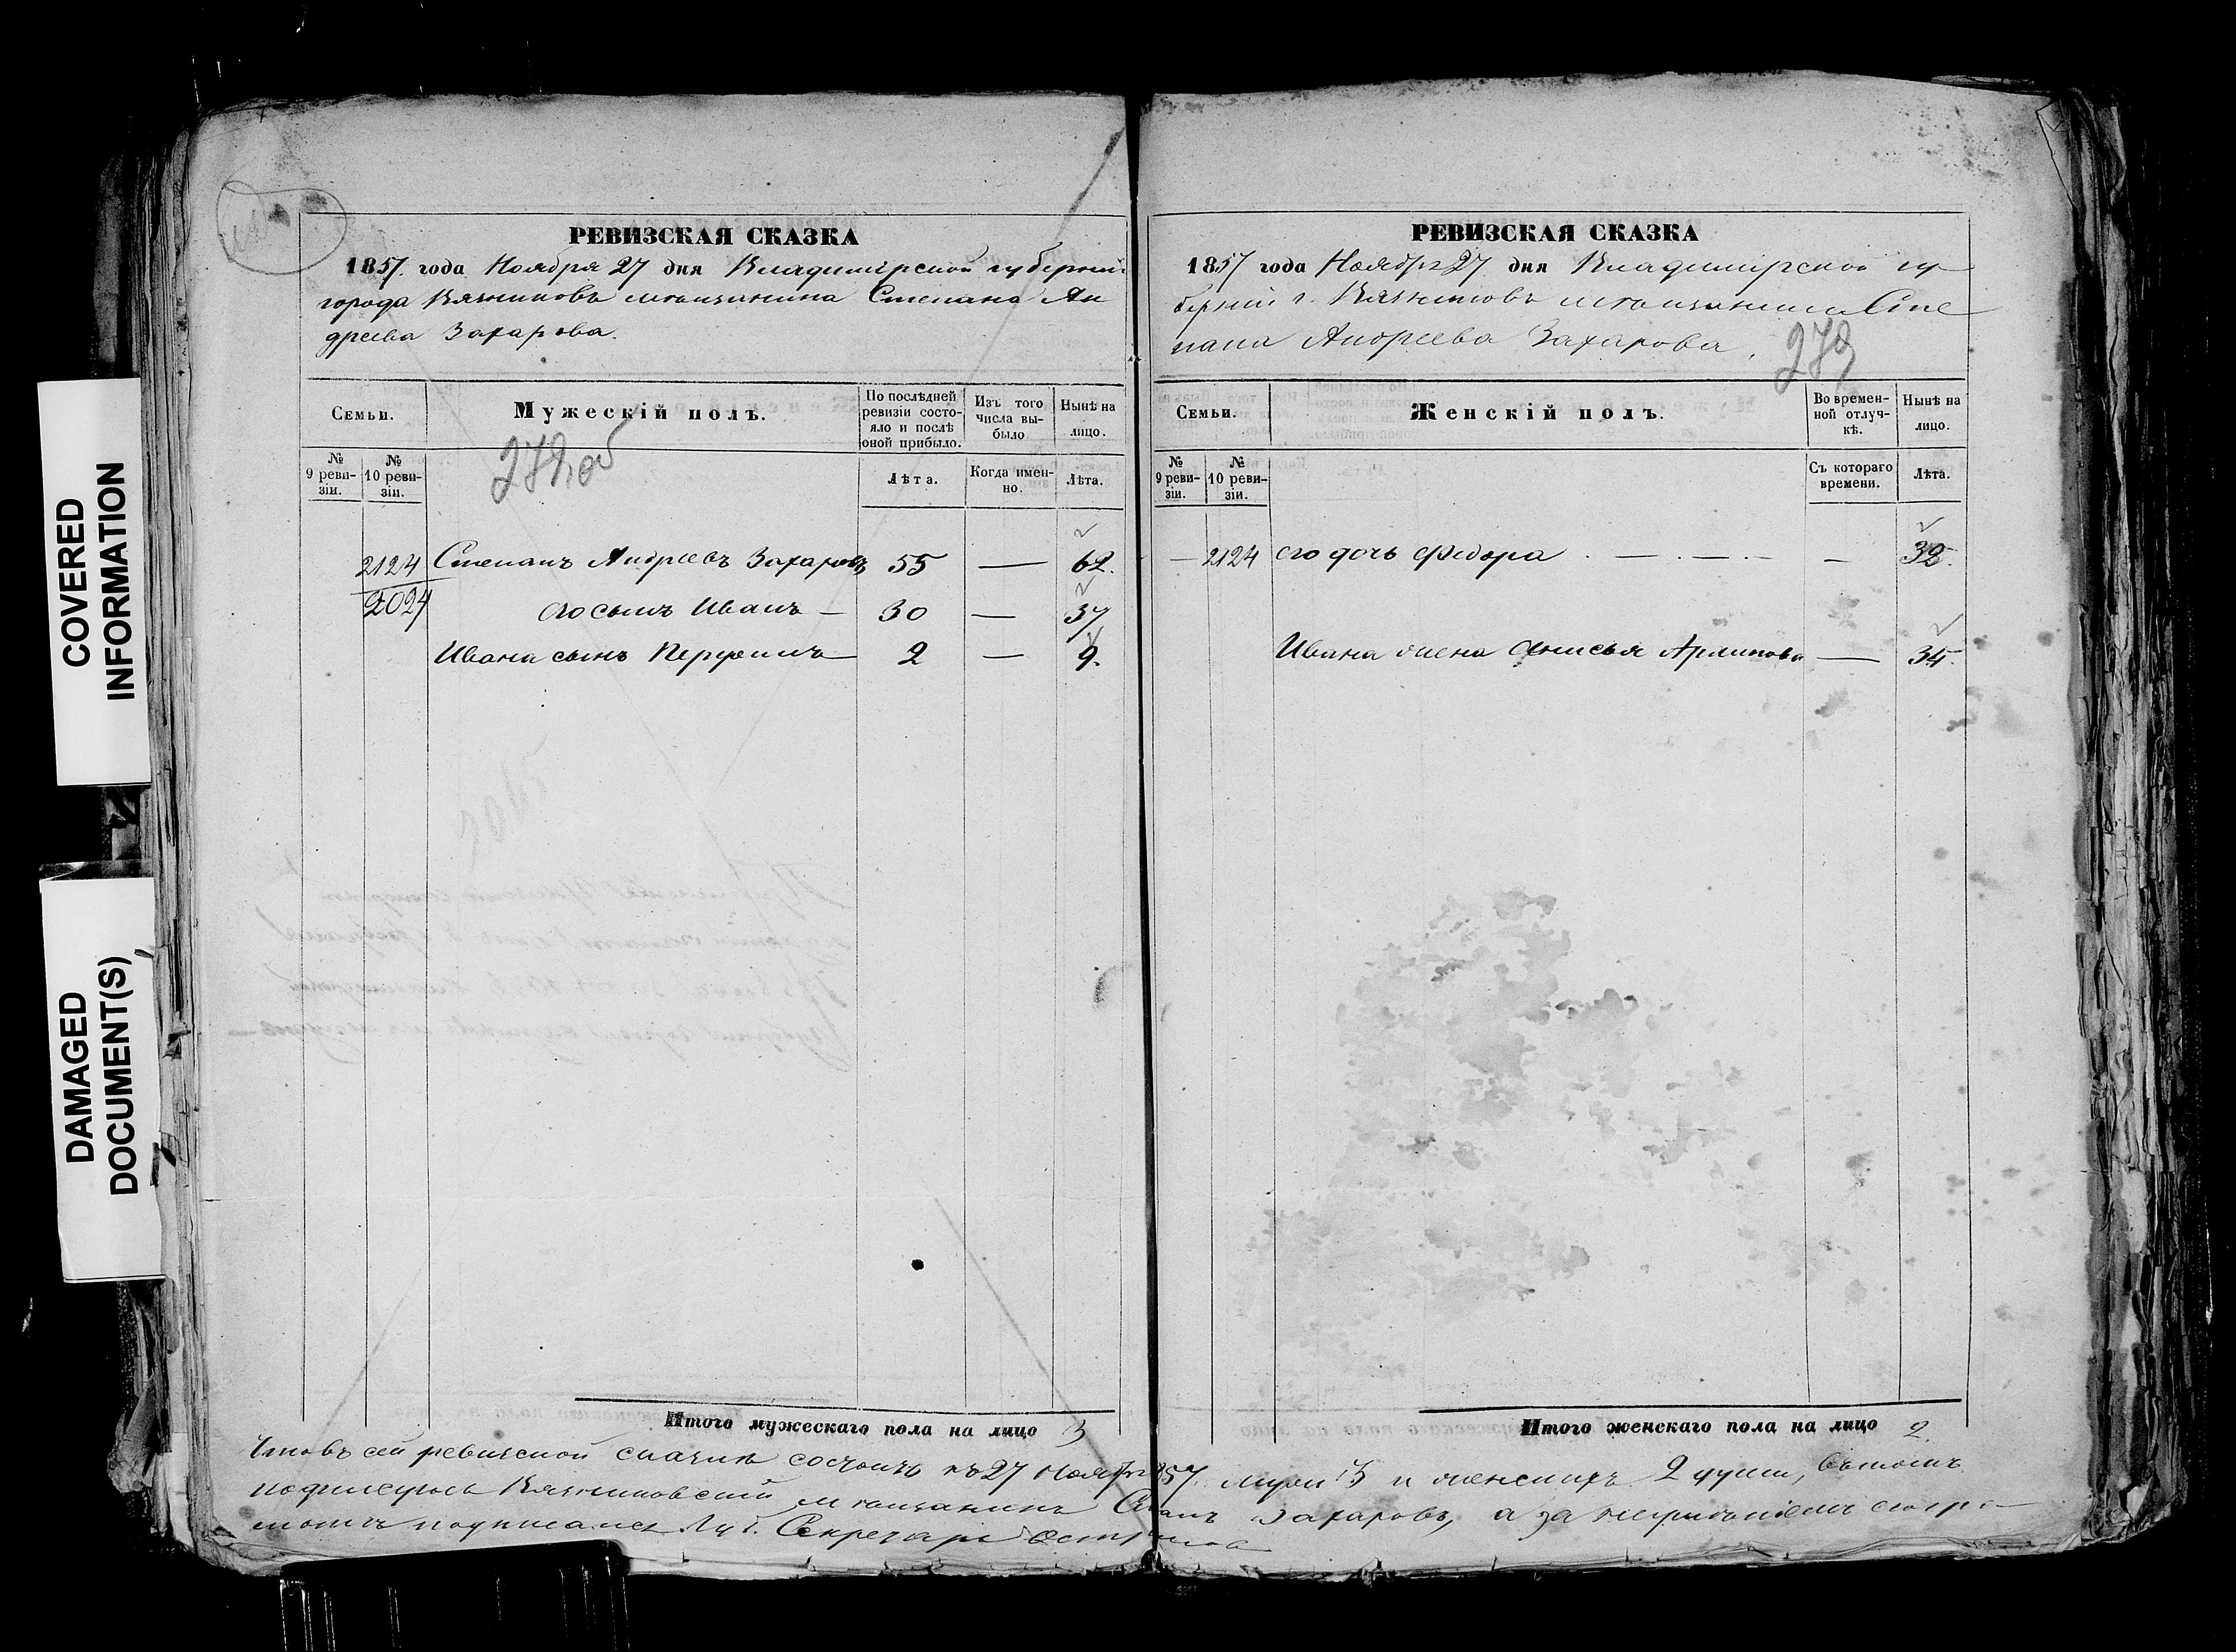 COVERED
INFORMATION
DAMAGED
DOCUMENT(S)
РЕВИЗСКАЯ СКАЗКА
1857 года Ноября 27 дня Владимірской губерніи
города Вязниковъ мѣщанина Степана Ан
дреева Захарова.
278 об
Семьи.
Мужескій полъ.
По послѣдней ревизіи состо-
яло и послѣ
оной прибыло.
Изъ того
числа вы-
было
Нынѣ на
лицо.
№
9 реви-
зіи.
№
10 реви-
зіи.
Лѣта.
Когда имен-
но.
Лѣта.
2124 Степанъ Андреевъ Захаровъ 55 — 62.
2024 его сынъ Иванъ — 30 — 37
Ивана сынъ 2 — 9.
Итого мужескаго пола на лицо 3
РЕВИЗСКАЯ СКАЗКА
1857 года Ноября 27 дня Владимірской гу
берніи г. Вязниковъ мѣщанина Сте
пана Андреева Захарова.
279
Семьи.
Женскій полъ.
Во времен-
ной отлуч-
кѣ.
Нынѣ на
лицо.
№
9 реви-
зіи.
№
10 реви-
зіи.
Съ котораго
времени.
Лѣта.
— 2124 его дочь Федора — — — 32.
Ивана жена Анисья — 35.
Итого женскаго пола на лицо 2.
Что въ сей ревизской сказки состоитъ къ 27 Ноября 1857. муж. 3 и женскихъ 2 души, въ томъ
подписуюсь Вязниковскій мѣщанинъ Степанъ Захаровъ, а за
подписался Губ. Секретарь